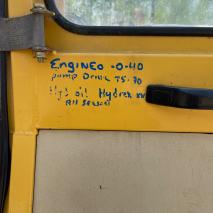 EnginEo -0-40
pump Drive 75-90
Hyd oil Hydrex
All season